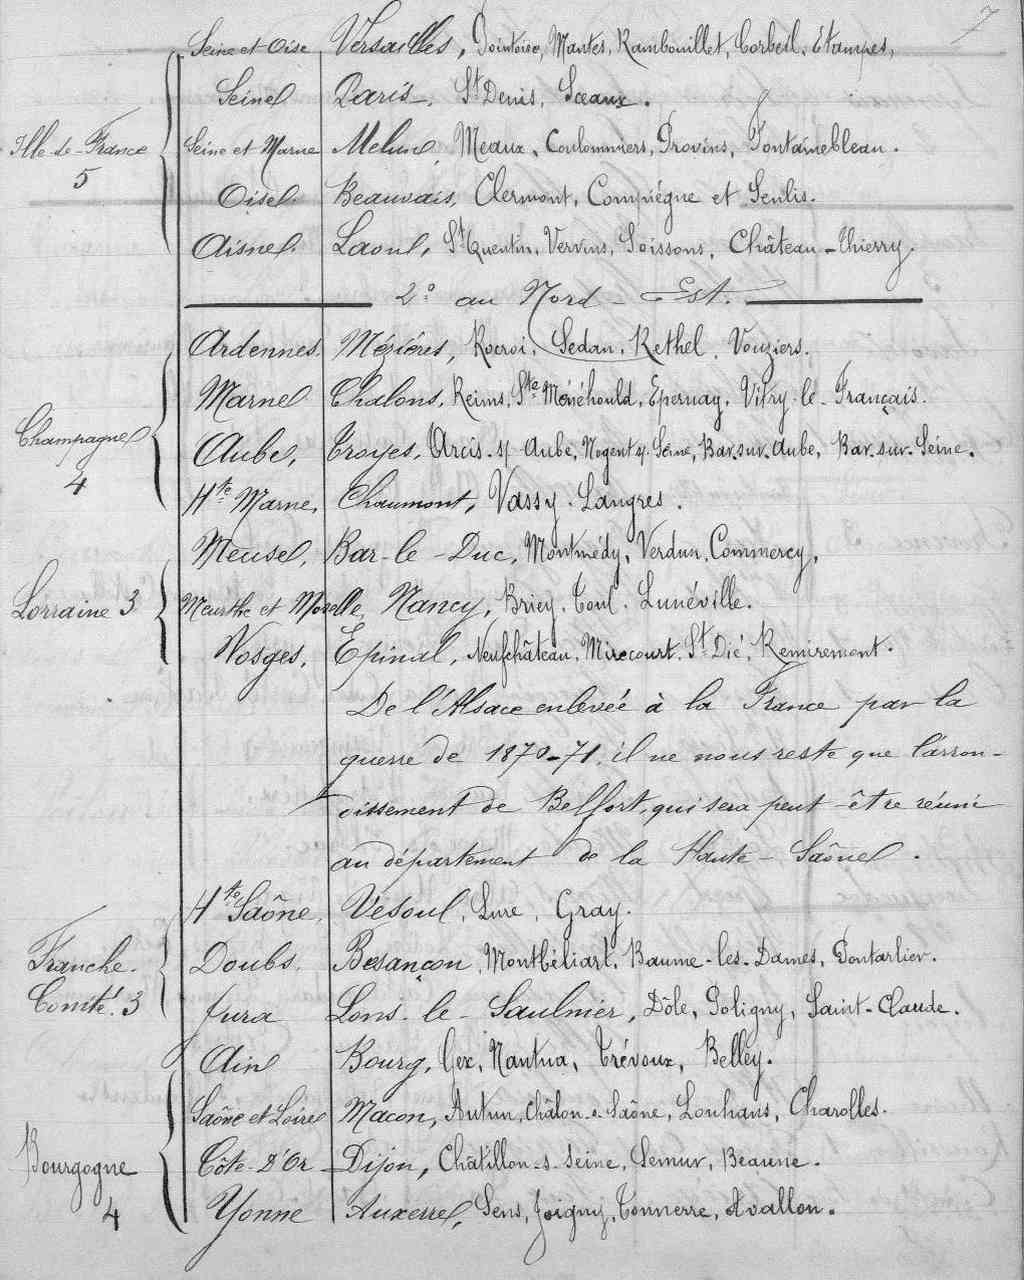 7
Seine et Oise Versailles, Pontoise, Mantes, Rambouillet, Corbeil, Etampes,
Seine Paris, St Denis, Sceaux.
Ille-de-France Seine et Marne Melun, Meaux, Coulommiers, Provins, Fontainebleau.
5
Oise Beauvais, Clermont, Compiégne et Senlis.
Aisne Laon, St Quentin, Vervins, Soissons, Château-Thierry.
2° au Nord-Est.
Ardennes Mézières, Rocroi, Sedan, Rethel, Vouziers.
Marne Chalons, Reims, Ste Ménéhould, Epernay, Vitry-le-Français.
Champagne
4
Aube, Troyes, Arcis-s/ Aube, Nogent s/ Seine, Bar-sur-Aube, Bar-sur-Seine.
Hte Marne, Chaumont, Vassy, Langres.
Meuse, Bar-le-Duc, Montmédy, Verdun, Commercy,
Lorraine 3 Meurthe et Moselle, Nancy, Briey, Toul, Lunéville.
Vosges, Epinal, Neufchâteau, Mirecourt, St Dié, Remiremont.
De l'Alsace enlevée à la France par la
guerre de 1870-71, il ne nous reste que l'arron-
dissement de Belfort, qui sera peut-être réuni
au département de la Haute-Saône.
Hte Saône, Vesoul, Lure, Gray.
Franche- Doubs, Besançon, Montbéliart, Baume-les-Dames, Pontarlier.
Comté. 3 Jura Lons-le-Saulnier, Dôle, Poligny, Saint-Claude.
Ain Bourg, Gex, Nantua, Trévoux, Belley.
Saône et Loire Macon, Autun, Châlon-s-Saône, Louhans, Charolles.
Bourgogne Côte-D'Or Dijon, Châtillon-s-Seine, Semur, Beaune.
4 Yonne Auxerre, Sens, Joigny, Tonnerre, Avallon.